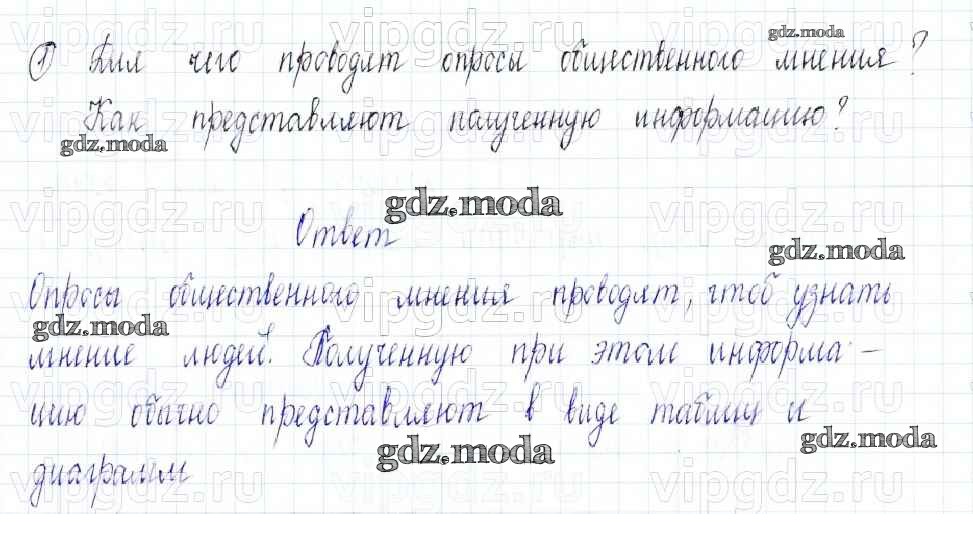 ① Для чего проводят опросы общественного мнения?
Как представляют полученную информацию?
Ответ
Опросы общественного мнения проводят, чтоб узнать
мнение людей. Полученную при этом информа-
цию обычно представляют в виде таблиц и
диаграмм
gdz.moda
gdz.moda
gdz.moda
gdz.moda
gdz.moda
gdz.moda
gdz.moda
vipgdz.ru